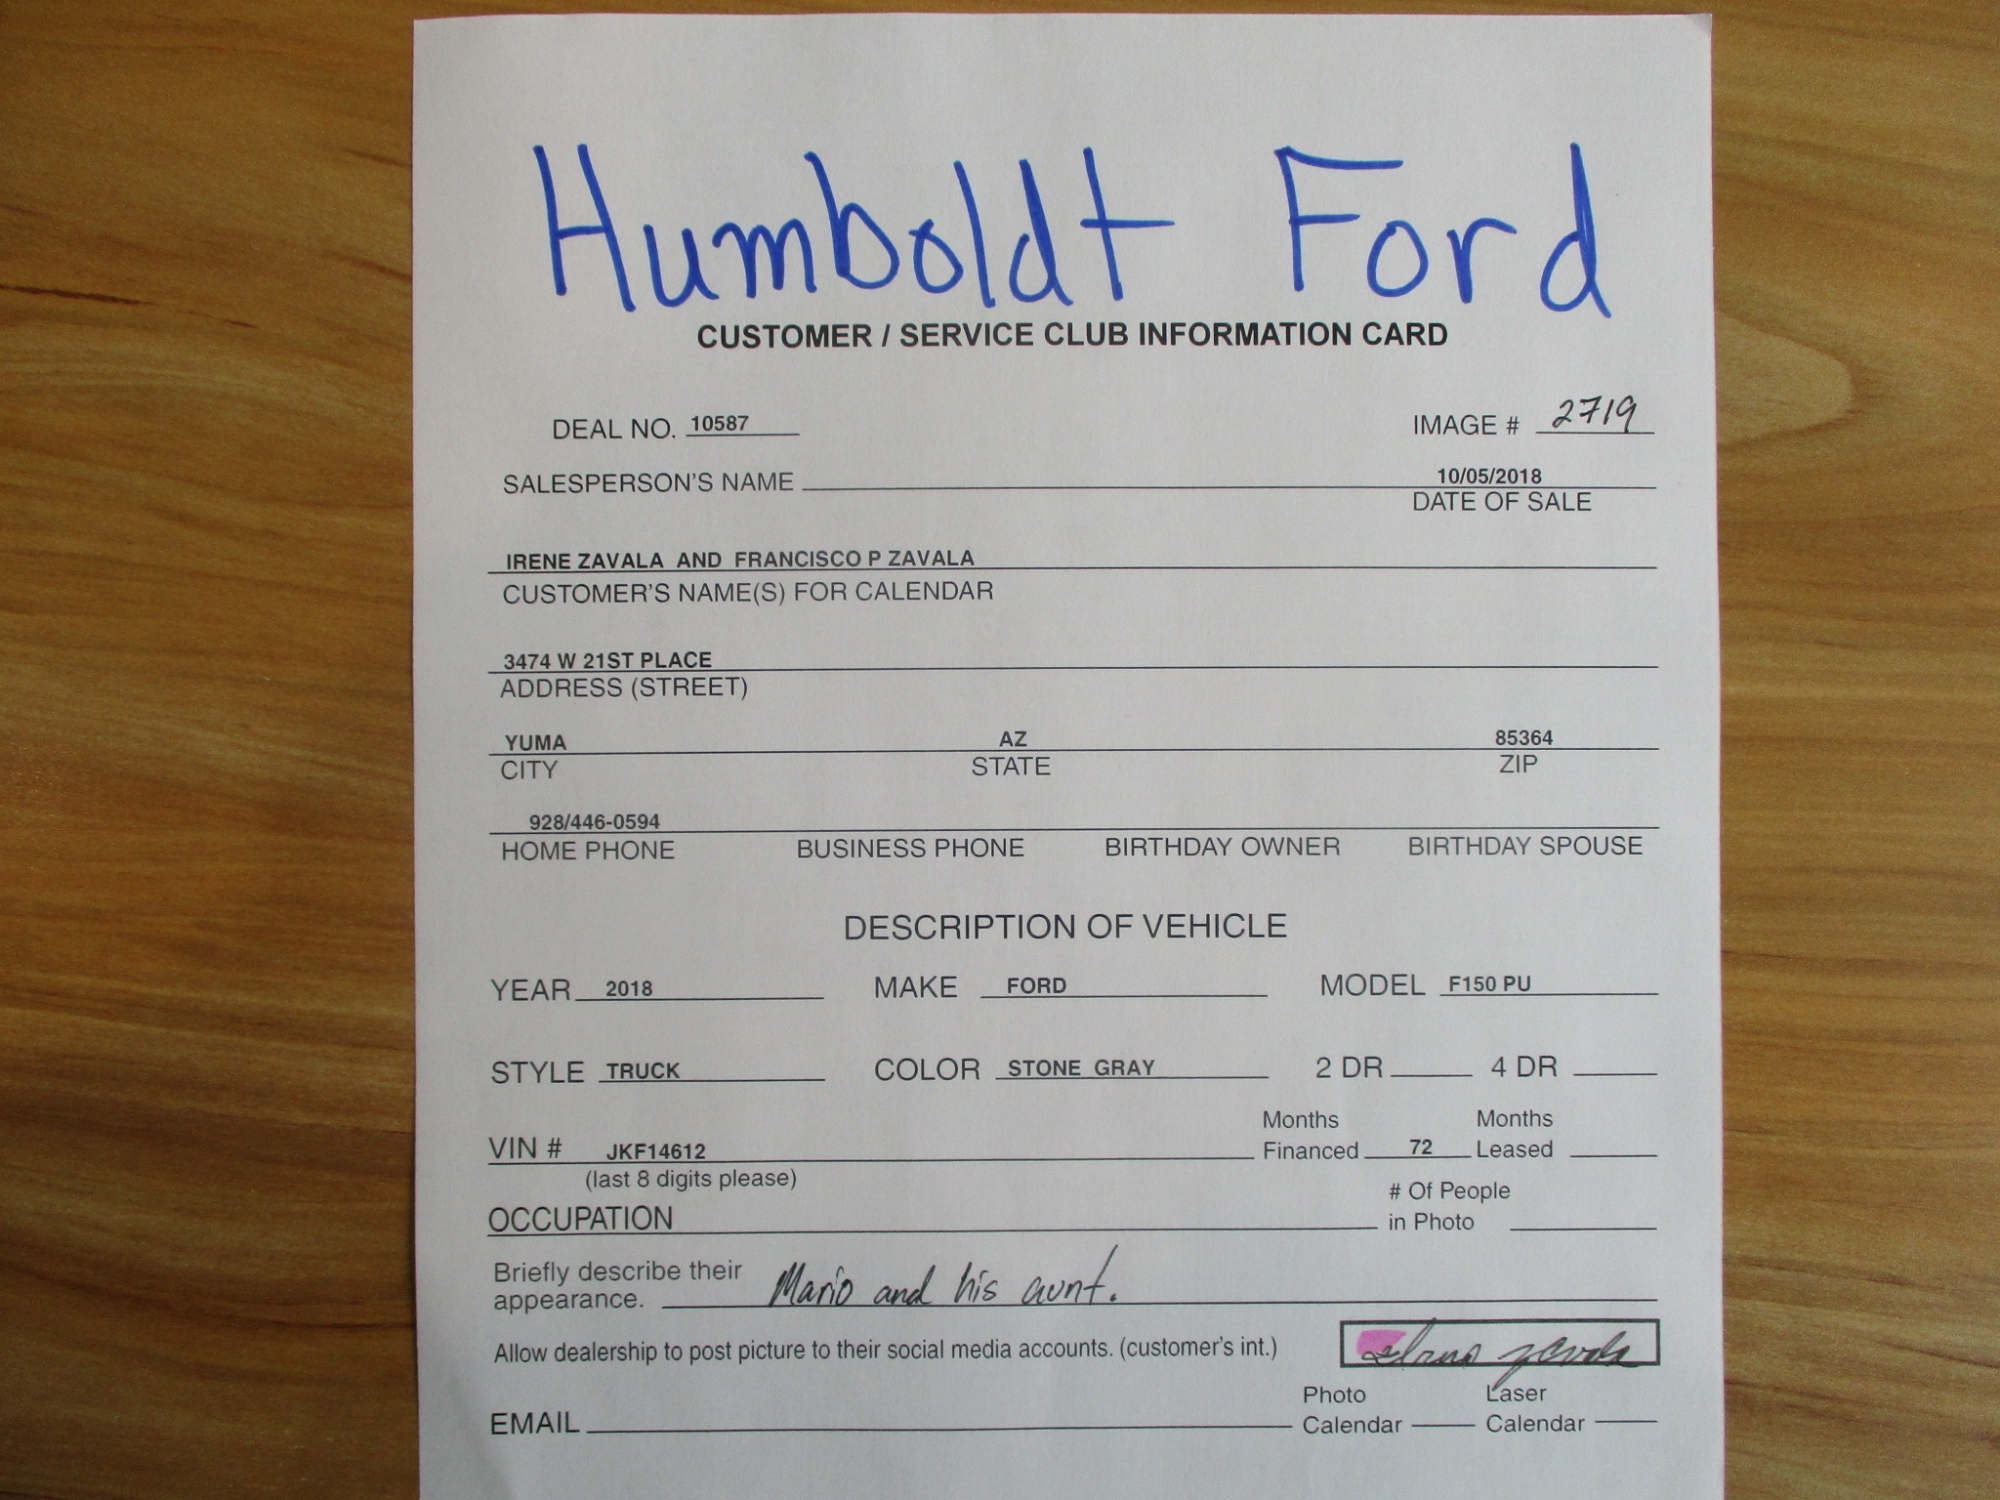 Humboldt Ford
CUSTOMER / SERVICE CLUB INFORMATION CARD
DEAL NO. 10587 IMAGE # 2719
SALESPERSON'S NAME 10/05/2018
DATE OF SALE
IRENE ZAVALA AND FRANCISCO P ZAVALA
CUSTOMER'S NAME(S) FOR CALENDAR
3474 W 21ST PLACE
ADDRESS (STREET)
YUMA AZ 85364
CITY STATE ZIP
928/446-0594
HOME PHONE BUSINESS PHONE BIRTHDAY OWNER BIRTHDAY SPOUSE
DESCRIPTION OF VEHICLE
YEAR 2018 MAKE FORD MODEL F150 PU
STYLE TRUCK COLOR STONE GRAY 2 DR 4 DR
Months Months
VIN # JKF14612 Financed 72 Leased
(last 8 digits please)
# Of People
OCCUPATION in Photo
Briefly describe their
appearance. Mario and his aunt.
Allow dealership to post picture to their social media accounts. (customer's int.) zavala
Photo Laser
EMAIL Calendar Calendar